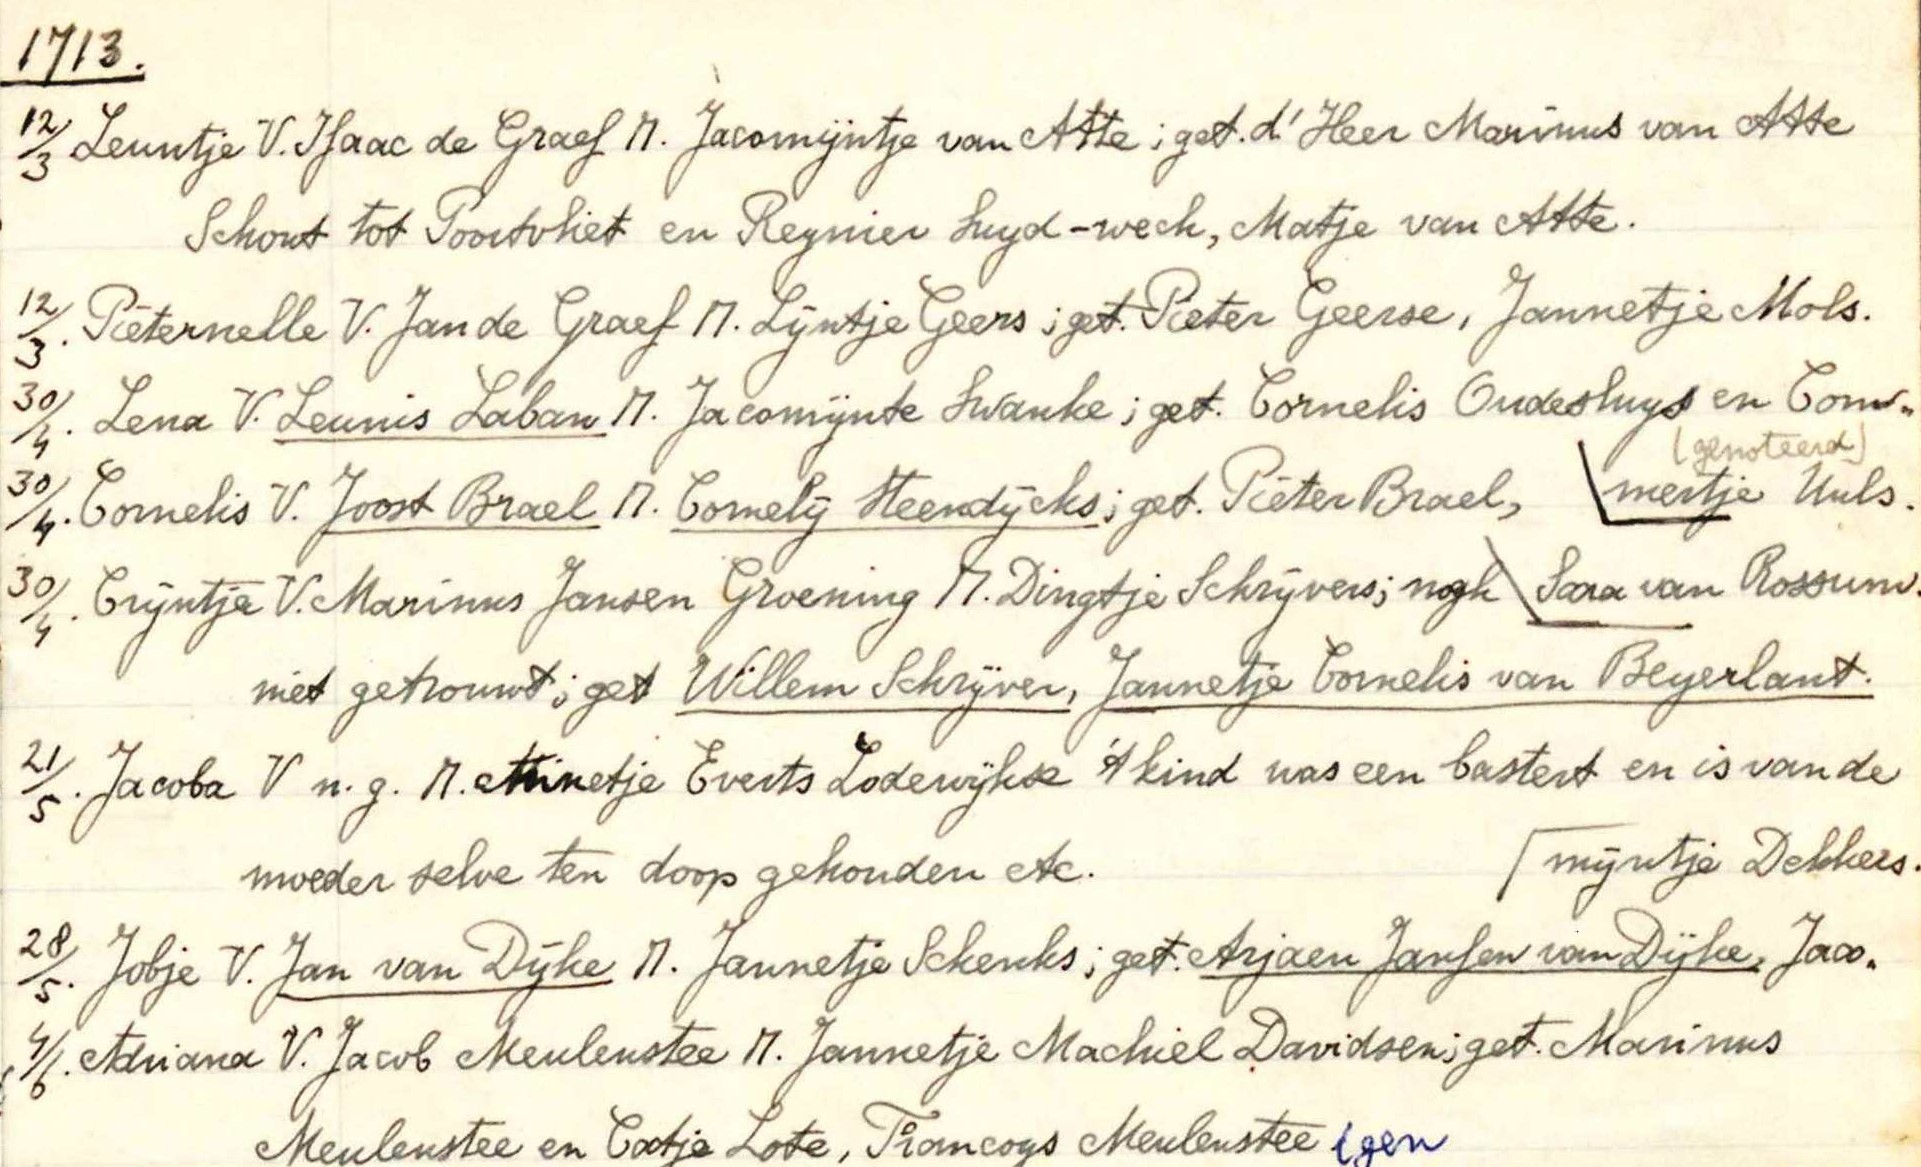 1713.
12/3 Leuntje V. Isaac de Graef M. Jacomijntje van Atte ; get. d' Heer Marinus van Atte
Schout tot Poortvliet en Reynier Luyd-wech, Matje van Atte.
12/3. Pieternelle V. Jan de Graef M. Lijntje Geers ; get. Pieter Geerse, Jannetje Mols.
30/4. Lena V. Leunis Laban M. Jacomijnte Swanke ; get. Cornelis Oudesluys en Com-
(genoteerd)
mertje Uuls.
30/4. Cornelis V. Joost Brael M. Cornelij Steendijcks ; get. Pieter Brael,
Sara van Rossum.
30/4. Crijntje V. Marinus Jansen Groening M. Dingtje Schrijvers ; nogh
niet getrouwt ; get Willem Schrijver, Jannetje Cornelis van Beyerlant.
21/5. Jacoba V n. g. M. Minetje Everts Lodewijkse 't kind was een bastert en is van de
moeder selve ten doop gehouden etc.
mijntje Dekkers.
28/5. Jobje V. Jan van Dijke M. Jannetje Schenks ; get. Arjaen Jansen van Dijke, Jaco-
4/6. Adriana V. Jacob Meulenstee M. Jannetje Machiel Davidsen ; get. Marinus
Meulenstee en Catje Lote, Francoys Meulenstee (gen